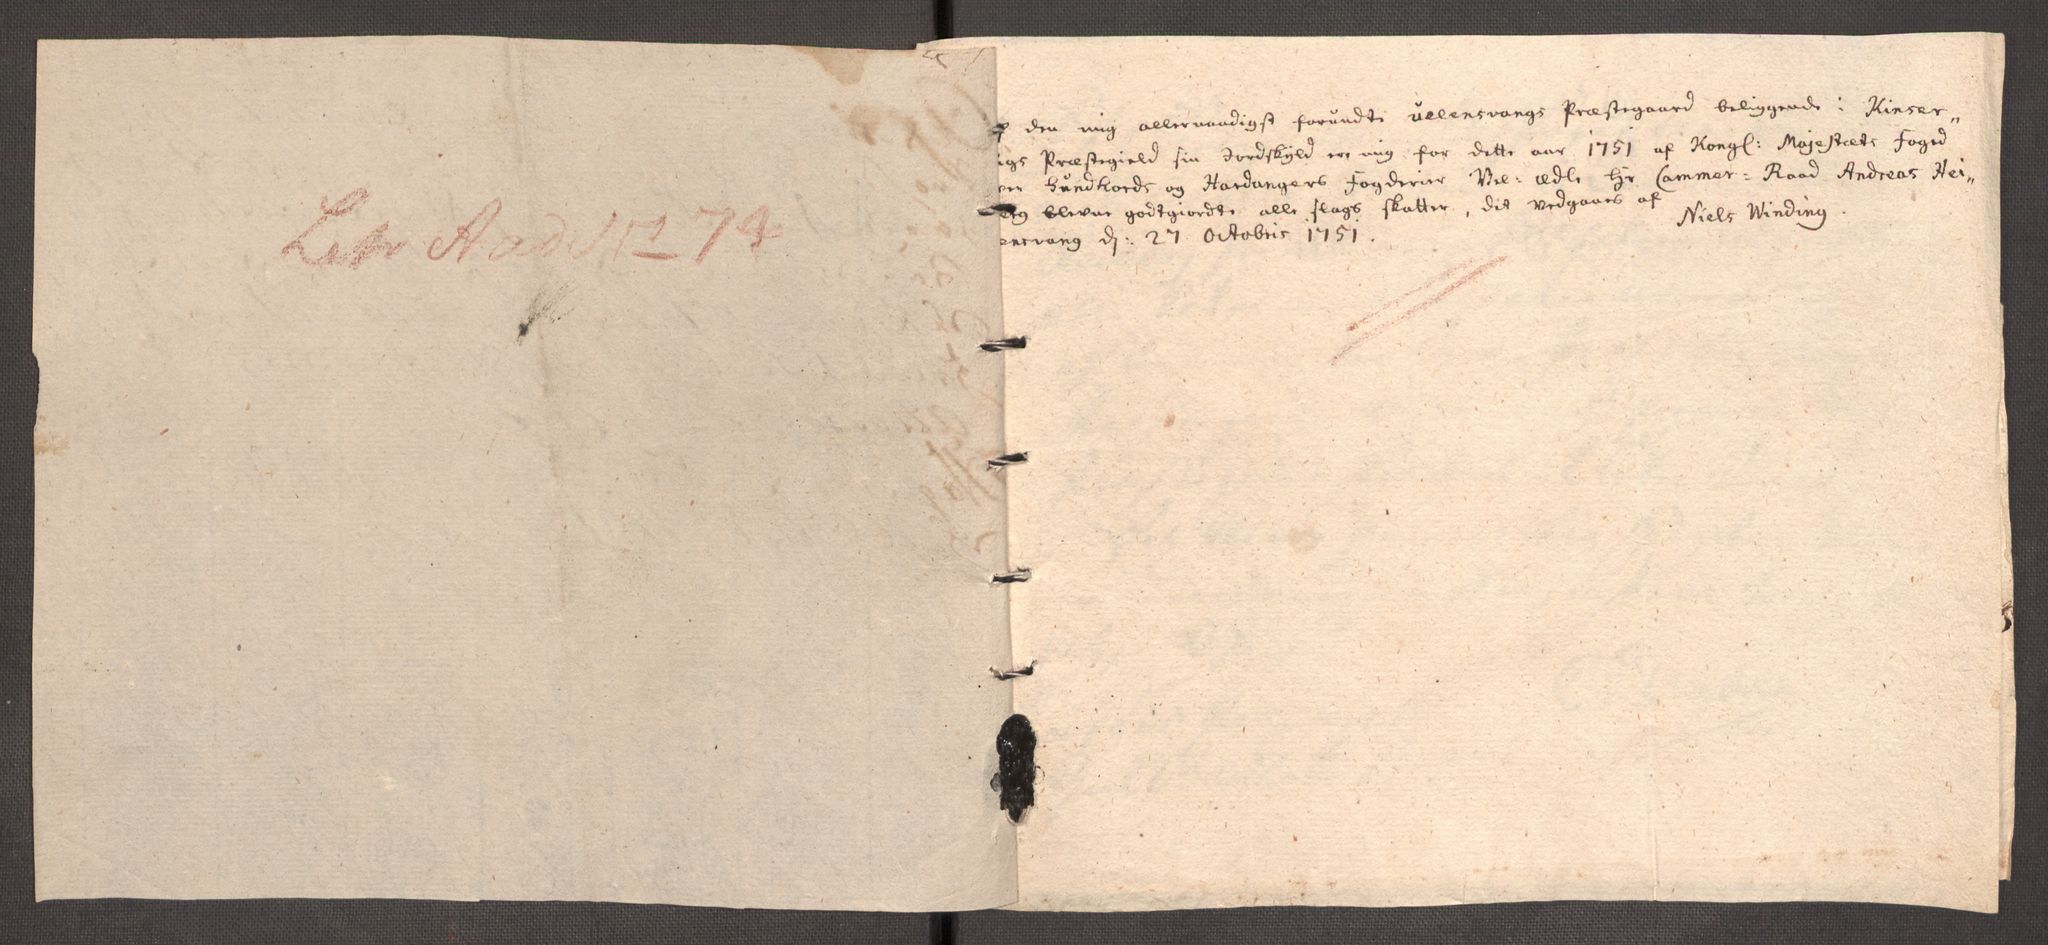 den mig allernaadigst forundte Ullensvangs Præstegaard beliggende i Kinser„
Præstegield sin Jordskyld ere mig for dette aar 1751 af Kongl: Majestæts Foged
Sundhords og Hardangers Fogderier Vel: ædle Hr Cammer: Raad Andreas Hei„
blevne godtgiordte alle slags skatter, dit vedgaaes af
ensvang d: 27 Octobris 1751.
Niels Winding.
74